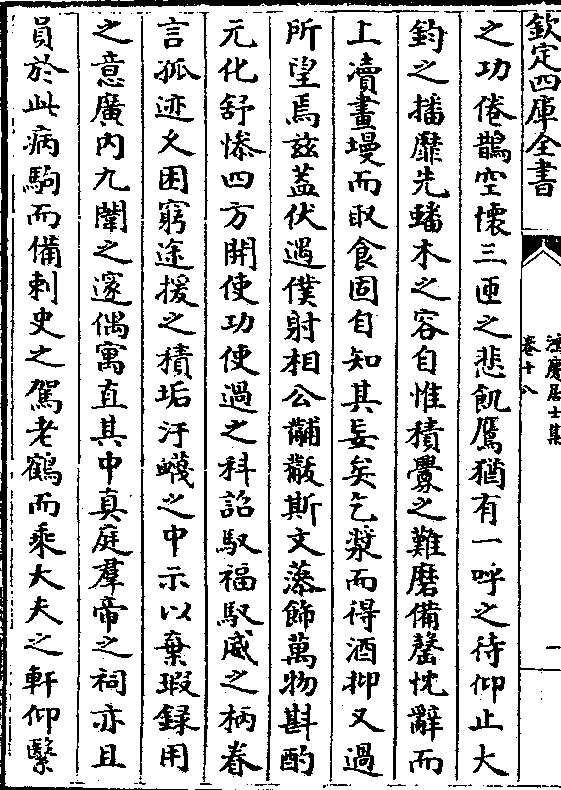 欽定四庫全書
卷十八
一
之功倦鵲空懷三匝之悲飢鷹猶有一呼之待仰止大
鈞之播靡先蟠木之容自惟積釁之難磨備罄忱辭而
上瀆畫墁而取食固自知其妄矣乞漿而得酒抑又過
所望焉茲蓋伏遇僕射相公黼黻斯文藻飾萬物斟酌
元化舒慘四方開使功使過之科詔馭福馭威之柄眷
言孤迹久困窮途援之積垢汙衊之中示以棄瑕録用
之意廣内九闈之邃偶寓直其中真庭羣帝之祠亦且
員於此病駒而備刺史之駕老鶴而乘大夫之軒仰繫